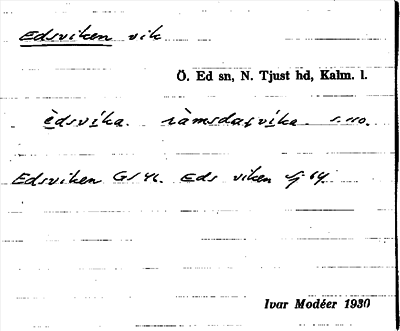 Edsviken vik
Ö. Ed sn, N. Tjust hd, Kalm. l.
èdsvíka. ràmsdaʃvíka s.110.
Edsviken GS 46. Eds viken Sj 64.
Ivar Modéer 1930